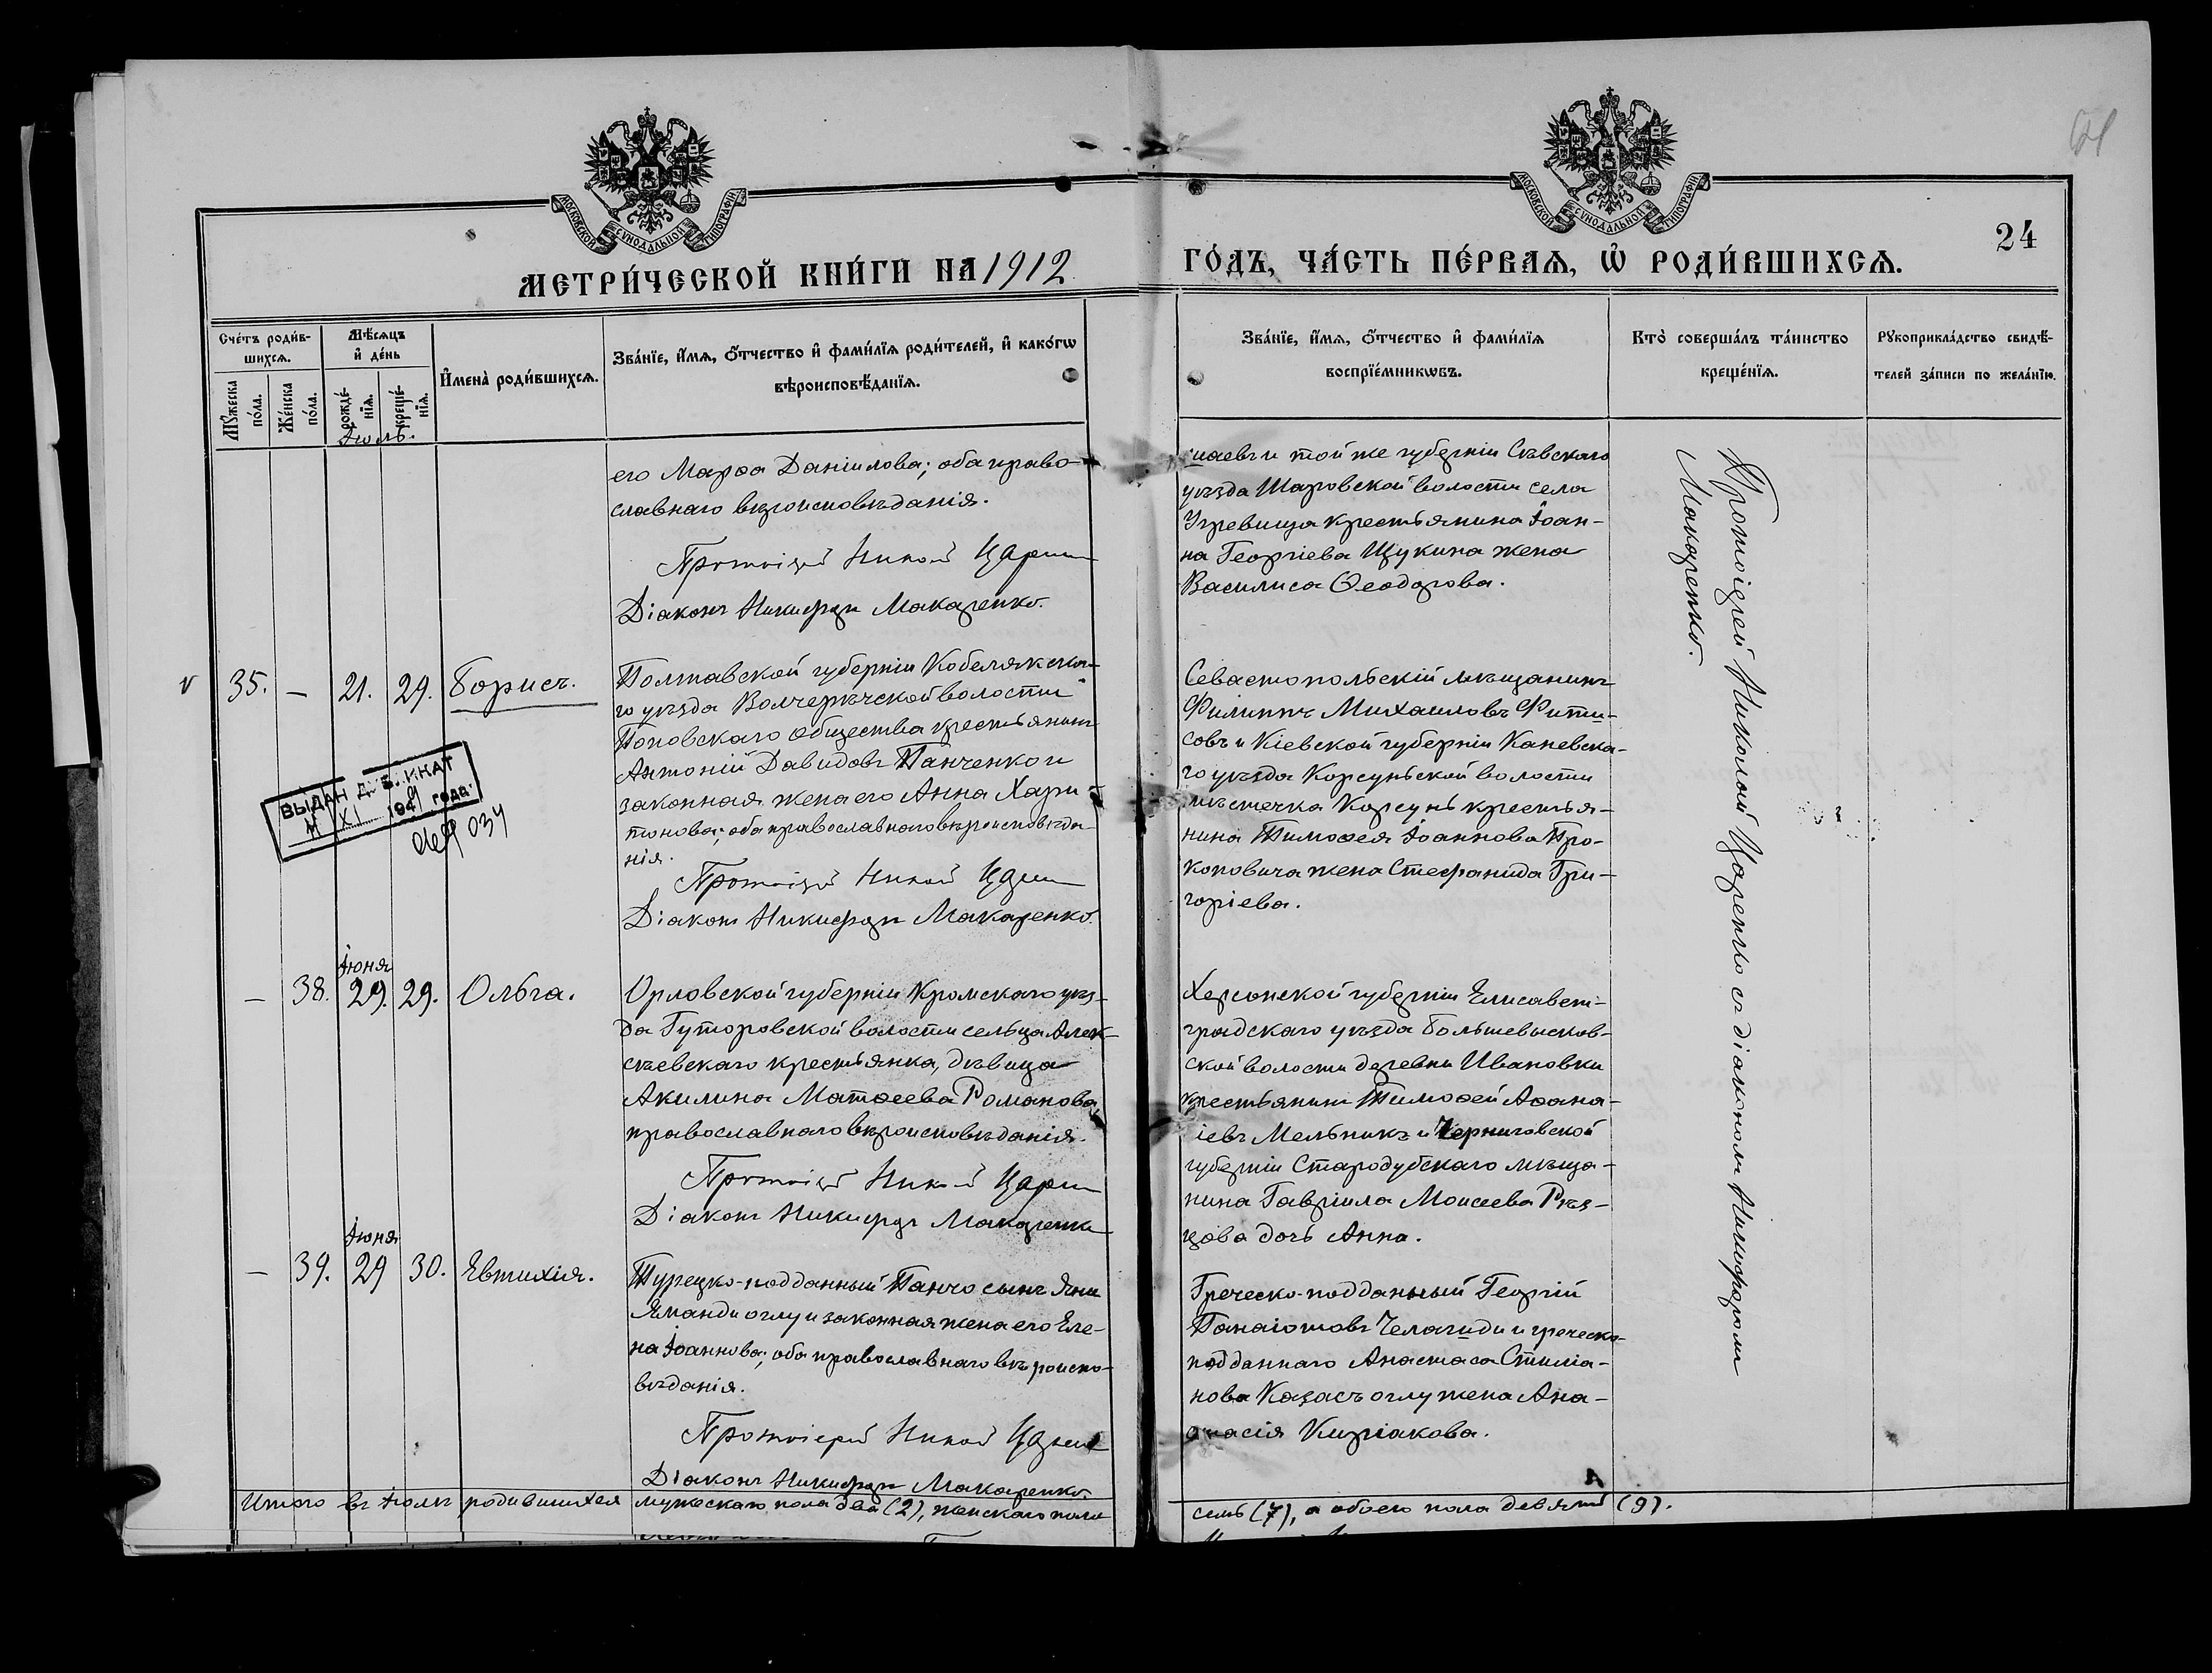 МОСКОВСКОЙ СѴНОДАЛЬНОЙ ТИПОГРАФІИ
МОСКОВСКОЙ СѴНОДАЛЬНОЙ ТИПОГРАФІИ
24
МЕТРИ́ЧЕСКОЙ КНИ́ГИ НА 1912
ГО́ДЪ, ЧА́СТЬ ПЕ́РВАѦ, Ѡ҆ РОДИ́ВШИХСѦ.
Сче́тъ роди́в-
шихсѧ.
Мꙋ́жеска
по́ла.
Же́нска
по́ла.
Мѣ́сѧцъ
и҆ де́нь
рожде́-
нїѧ.
креще́-
нїѧ.
И҆мена̀ роди́вшихсѧ.
Зва́нїе, и҆́мѧ, ѻ҆́тчество и҆ фами́лїѧ роди́телей, и҆ како́гѡ
вѣроисповѣ́данїѧ.
Зва́нїе, и҆́мѧ, ѻ҆́тчество и҆ фами́лїѧ
воспрїе́мникѡвъ.
Кто̀ соверша́лъ та́инство
креще́нїѧ.
Рꙋкоприкла́дство свидѣ́-
телей за́писи по жела́нїю.
Іюль.
его Марѳа Даніилова; оба право-
славнаго вѣроисповѣданія.
Протоіерей Николай
Діаконъ Никифоръ Макаренко.
той же губерніи Сѣвскаго
уѣзда Шаровской волости села
Угревища крестьянина Іоан-
на Георгіева Щукина жена
Василиса Ѳеодорова.
Протоіерей Николай Царенко съ діакономъ Никифоромъ
Макаренко.
35. — 21. 29. Борисъ.
Полтавской губерніи Кобелякска-
го уѣзда Волчерѣчской волости
Поповскаго общества крестьянинъ
Антоній Давидовъ Панченко и
законная жена его Анна Хари-
тонова; оба православнаго вѣроисповѣда-
нія.
Протоіерей Николай
Діаконъ Никифоръ Макаренко.
Севастопольскій мѣщанинъ
Филиппъ Михаиловъ Фити-
совъ и Кіевской губерніи Каневска-
го уѣзда Корсуньской волости
мѣстечка Корсунь крестья-
нина Тимоѳея Іоаннова Про-
коповича жена Стефанида Гри-
горіева.
ВЫДАН ДУБЛИКАТ
XI 194 года
034
— 38. Іюня 29. 29. Ольга.
Орловской губерніи Кромскаго уѣз-
да Гуторовской волости сельца Алек-
сѣевскаго крестьянка, дѣвица
Акилина Матѳеева Романова
православнаго вѣроисповѣданія.
Протоіерей Николай
Діаконъ Никифоръ Макаренко
Херсонской губерніи Елисавет-
градскаго уѣзда Большевысков-
ской волости деревни Ивановки
крестьянинъ Тимоѳей Аѳана-
іевъ Мельникъ и Черниговской
губерніи Стародубскаго мѣща-
нина Гавріила Моисеева Рѣз-
цова дочь Анна.
— 39. Іюня 29 30. Евтихія.
Турецко-подданный Панчо сынъ Яни
Яманди оглу и законная жена его Еле-
на Іоаннова; оба православнаго вѣроиспо-
вѣданія.
Протоіерей Николай
Діаконъ Никифоръ Макаренко.
Греческо-подданный Георгій
Панаіотовъ Челагиди и греческо-
подданнаго Анастаса Стиліа-
нова Казасъ оглу жена Ана-
стасія Киріакова.
Итого въ Іюлѣ родившихся мужескаго пола два (2), женскаго пола
семь (7), а обоего пола девять (9).